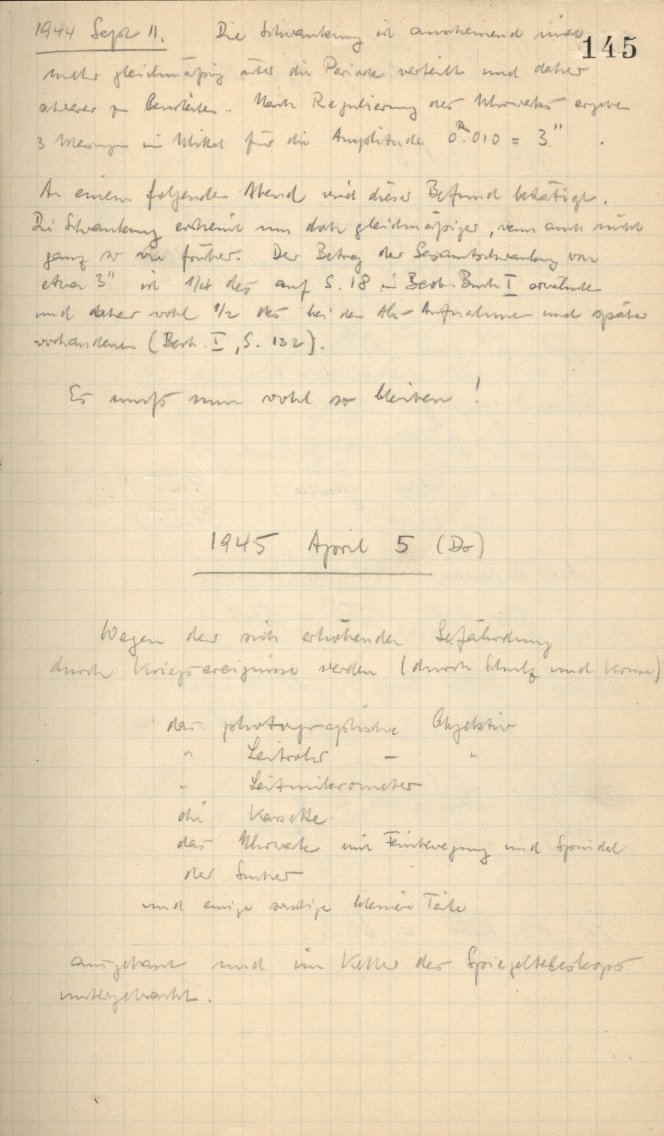 145
1944 Sept 11. Die Schwankung ist anscheinend nicht
mehr gleichmäßig über die Periode verteilt und daher
schwerer zu beurteilen. Nach Regulierung des Uhrwerks ergeben
3 Messungen im Mittel für die Amplitude 0.010 = 3".
An einem folgenden Abend wird dieser Befund bestätigt.
Die Schwankung erscheint nun doch gleichmäßiger, wenn auch nicht
ganz so wie früher. Der Betrag der Gesamtschwankung von
etwa 3" ist 1/4 des auf S. 18 in Beob. Buch I erwähnten
und daher wohl 1/2 des bei den Aufnahmen und später
vorhandenen (Beob. I, S. 132).
Es muß nun wohl so bleiben!
1945 April 5 (Do)
Wegen der sich erhöhenden Gefährdung
durch Kriegsereignisse werden (durch Schulz und Kruse)
das photographische Objektiv
" Leitrohr - "
" Leitmikrometer
die Kassette
das Uhrwerk mit Feinbewegung und Spindel
der Sucher
und einige sonstige kleine Teile
ausgebaut und im Keller des Spiegelteleskops
untergebracht.